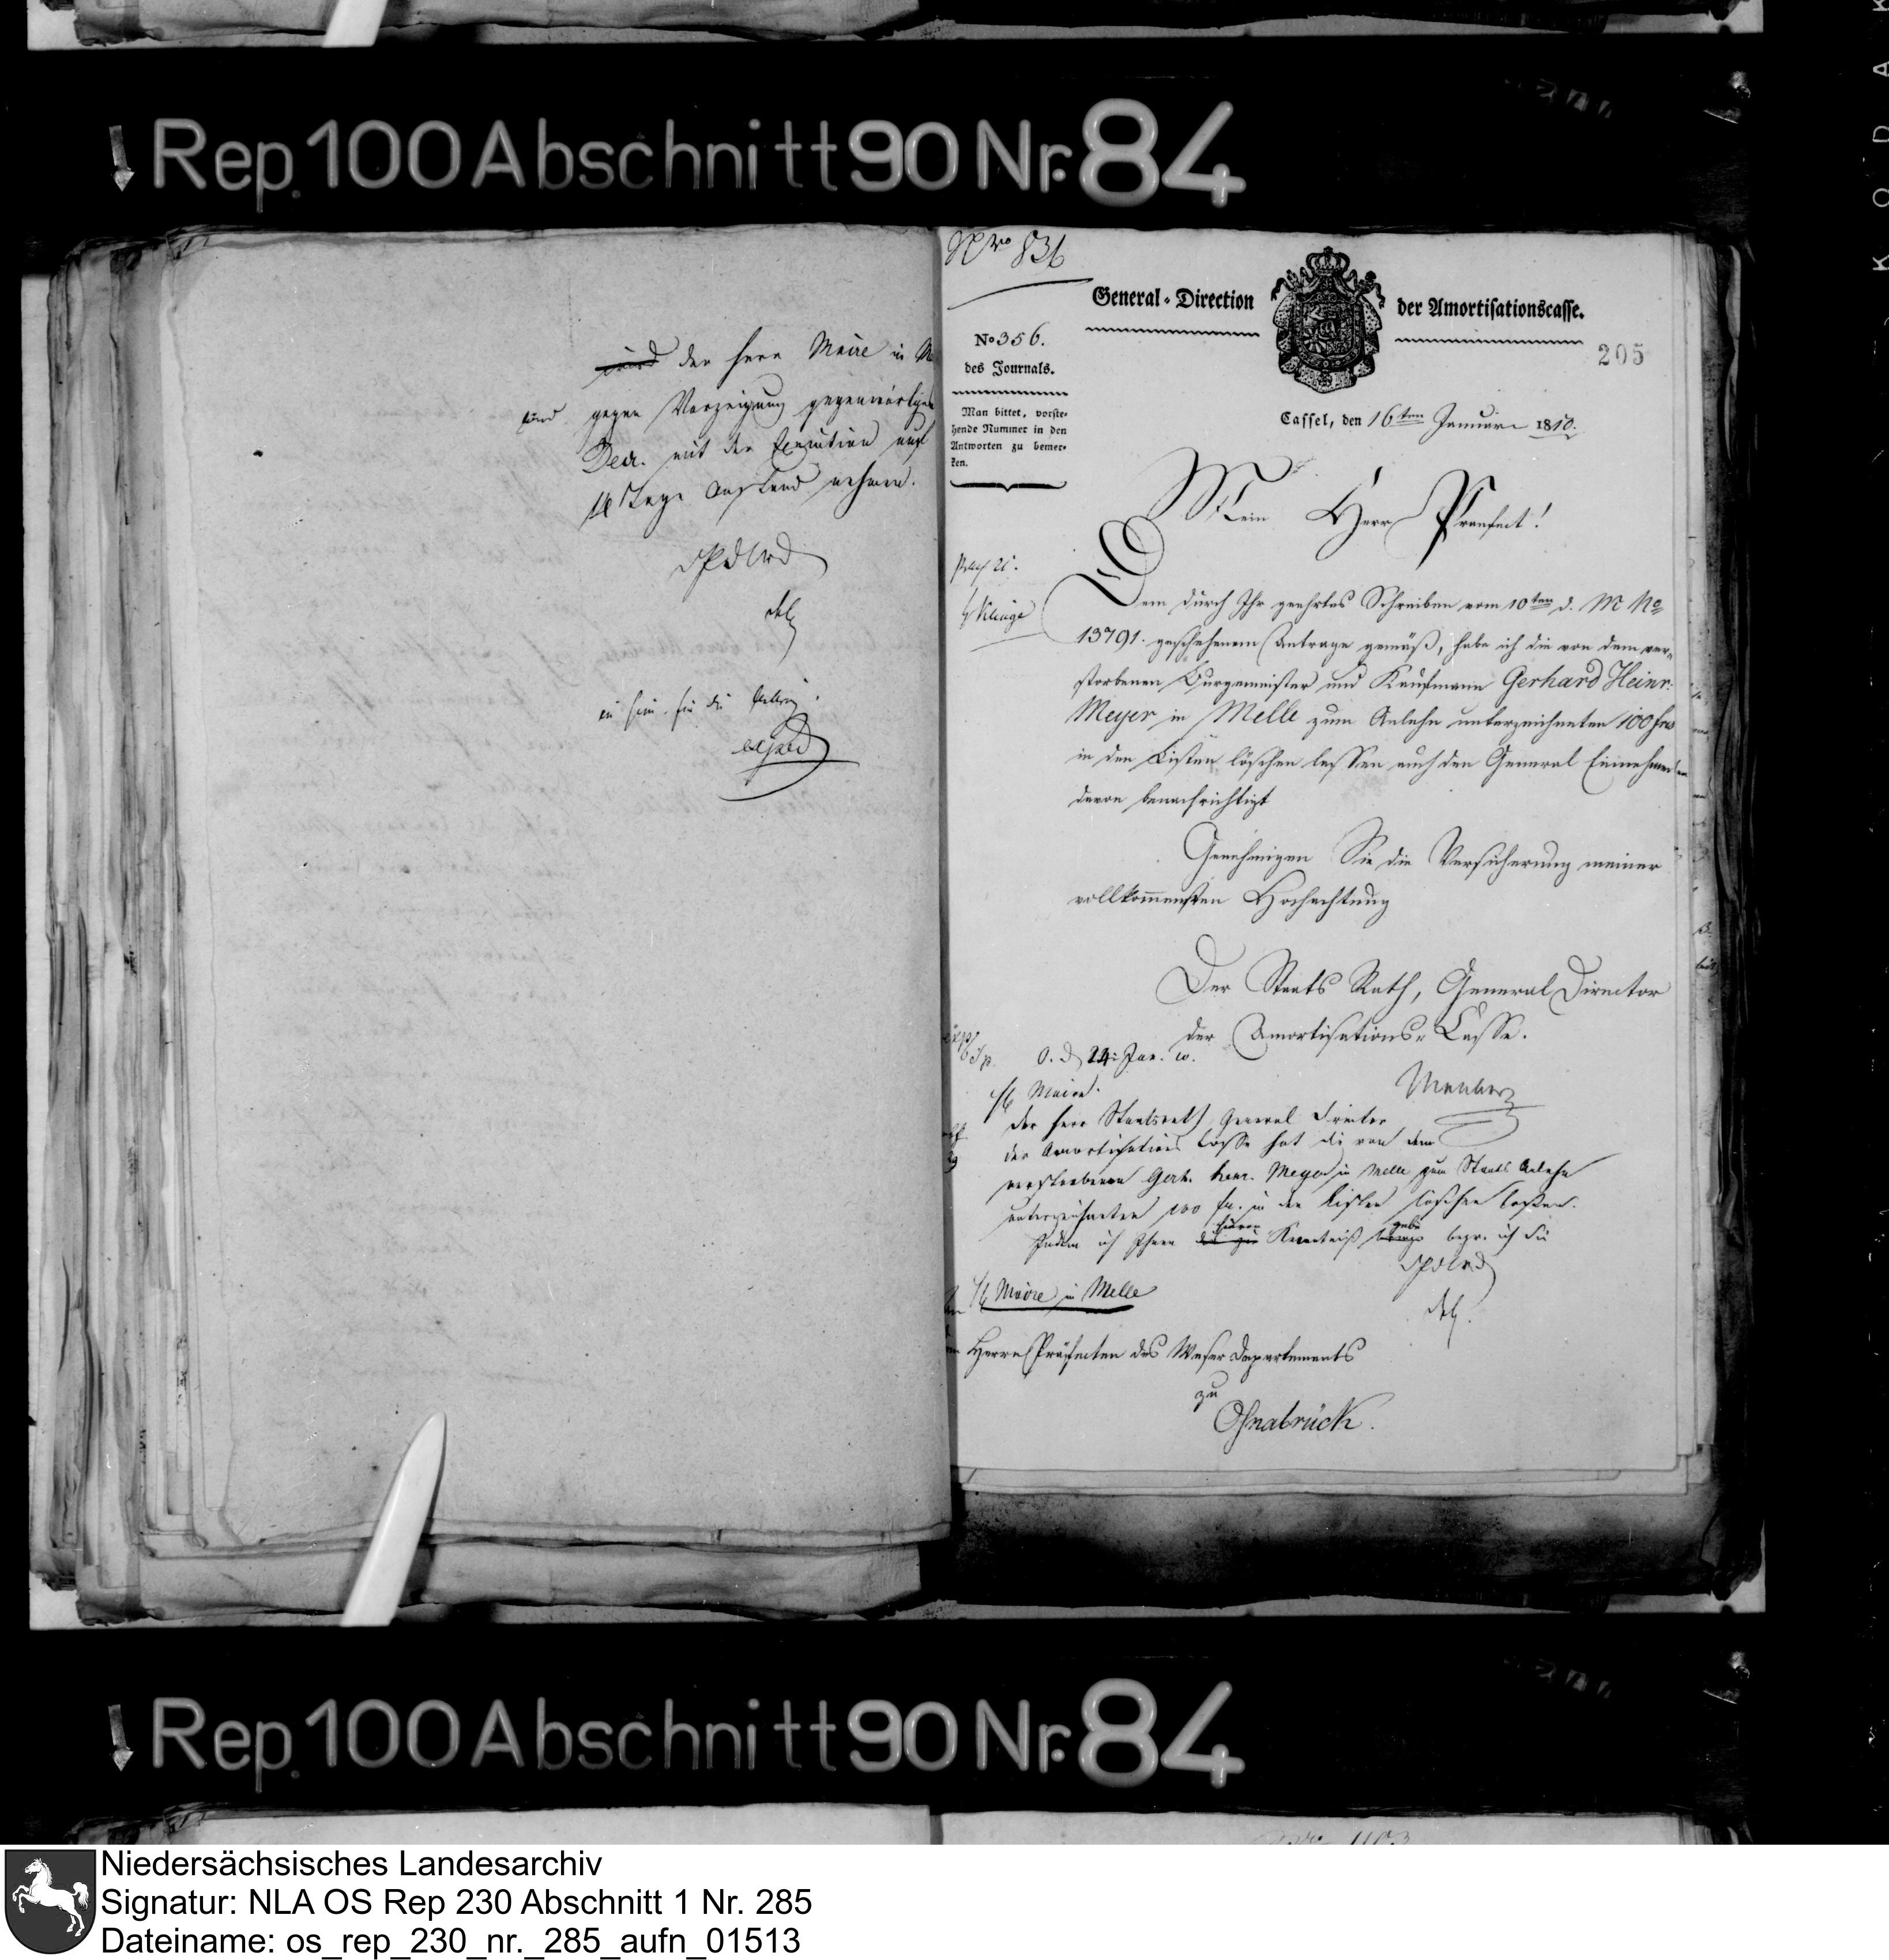 Rep. 100 Abschnitt 90 Nr. 84
der Herr Maire in M
und gegen Vorzeigung gegenwärtigen
Decr. mit der Execution auf
14 Tage Anstand nehmen.
exped
Nro 836
General-Direction der Amortisationscasse.
No 356.
des Journals.
Man bittet, vorste-
hende Nummer in den
Antworten zu bemer-
ken.
205
Cassel, den 16ten Januar 1810.
Mein Herr Praefect!
Dem durch Ihr geehrtes Schreiben vom 10ten d. M No
13791. geschehenem Antrage gemäß, habe ich die von dem ver-
storbenen Burgemeister und Kaufmann Gerhard Heinr.
Meyer in Melle zum Anlehn unterzeichneten 100 frs
in den Listen löschen lassen auch den General Einnehmer
davon benachrichtigt
Genehmigen Sie die Versicherung meiner
vollkommensten Hochachtung
Der Staats Rath, General Director
der Amortisations-Casse.
O. d 24. Jan. 10.
H Maire.
der Herr Staatsrath General Director
der Amortisations Casse hat die von dem
verstorbenen Gerh. Henr. Meyer in Melle zum Staats Anlehn
unterzeichneten 100 fr. in den Listen löschen laßen.
Indem ich Ihnen hievon Kenntniß gebe bezr. ich Sie
H Maire in Melle
Herrn Präfecten des Weser Departements
zu
Osnabrück.
Rep. 100 Abschnitt 90 Nr. 84
KODAK
Niedersächsisches Landesarchiv
Signatur: NLA OS Rep 230 Abschnitt 1 Nr. 285
Dateiname: os_rep_230_nr._285_aufn_01513